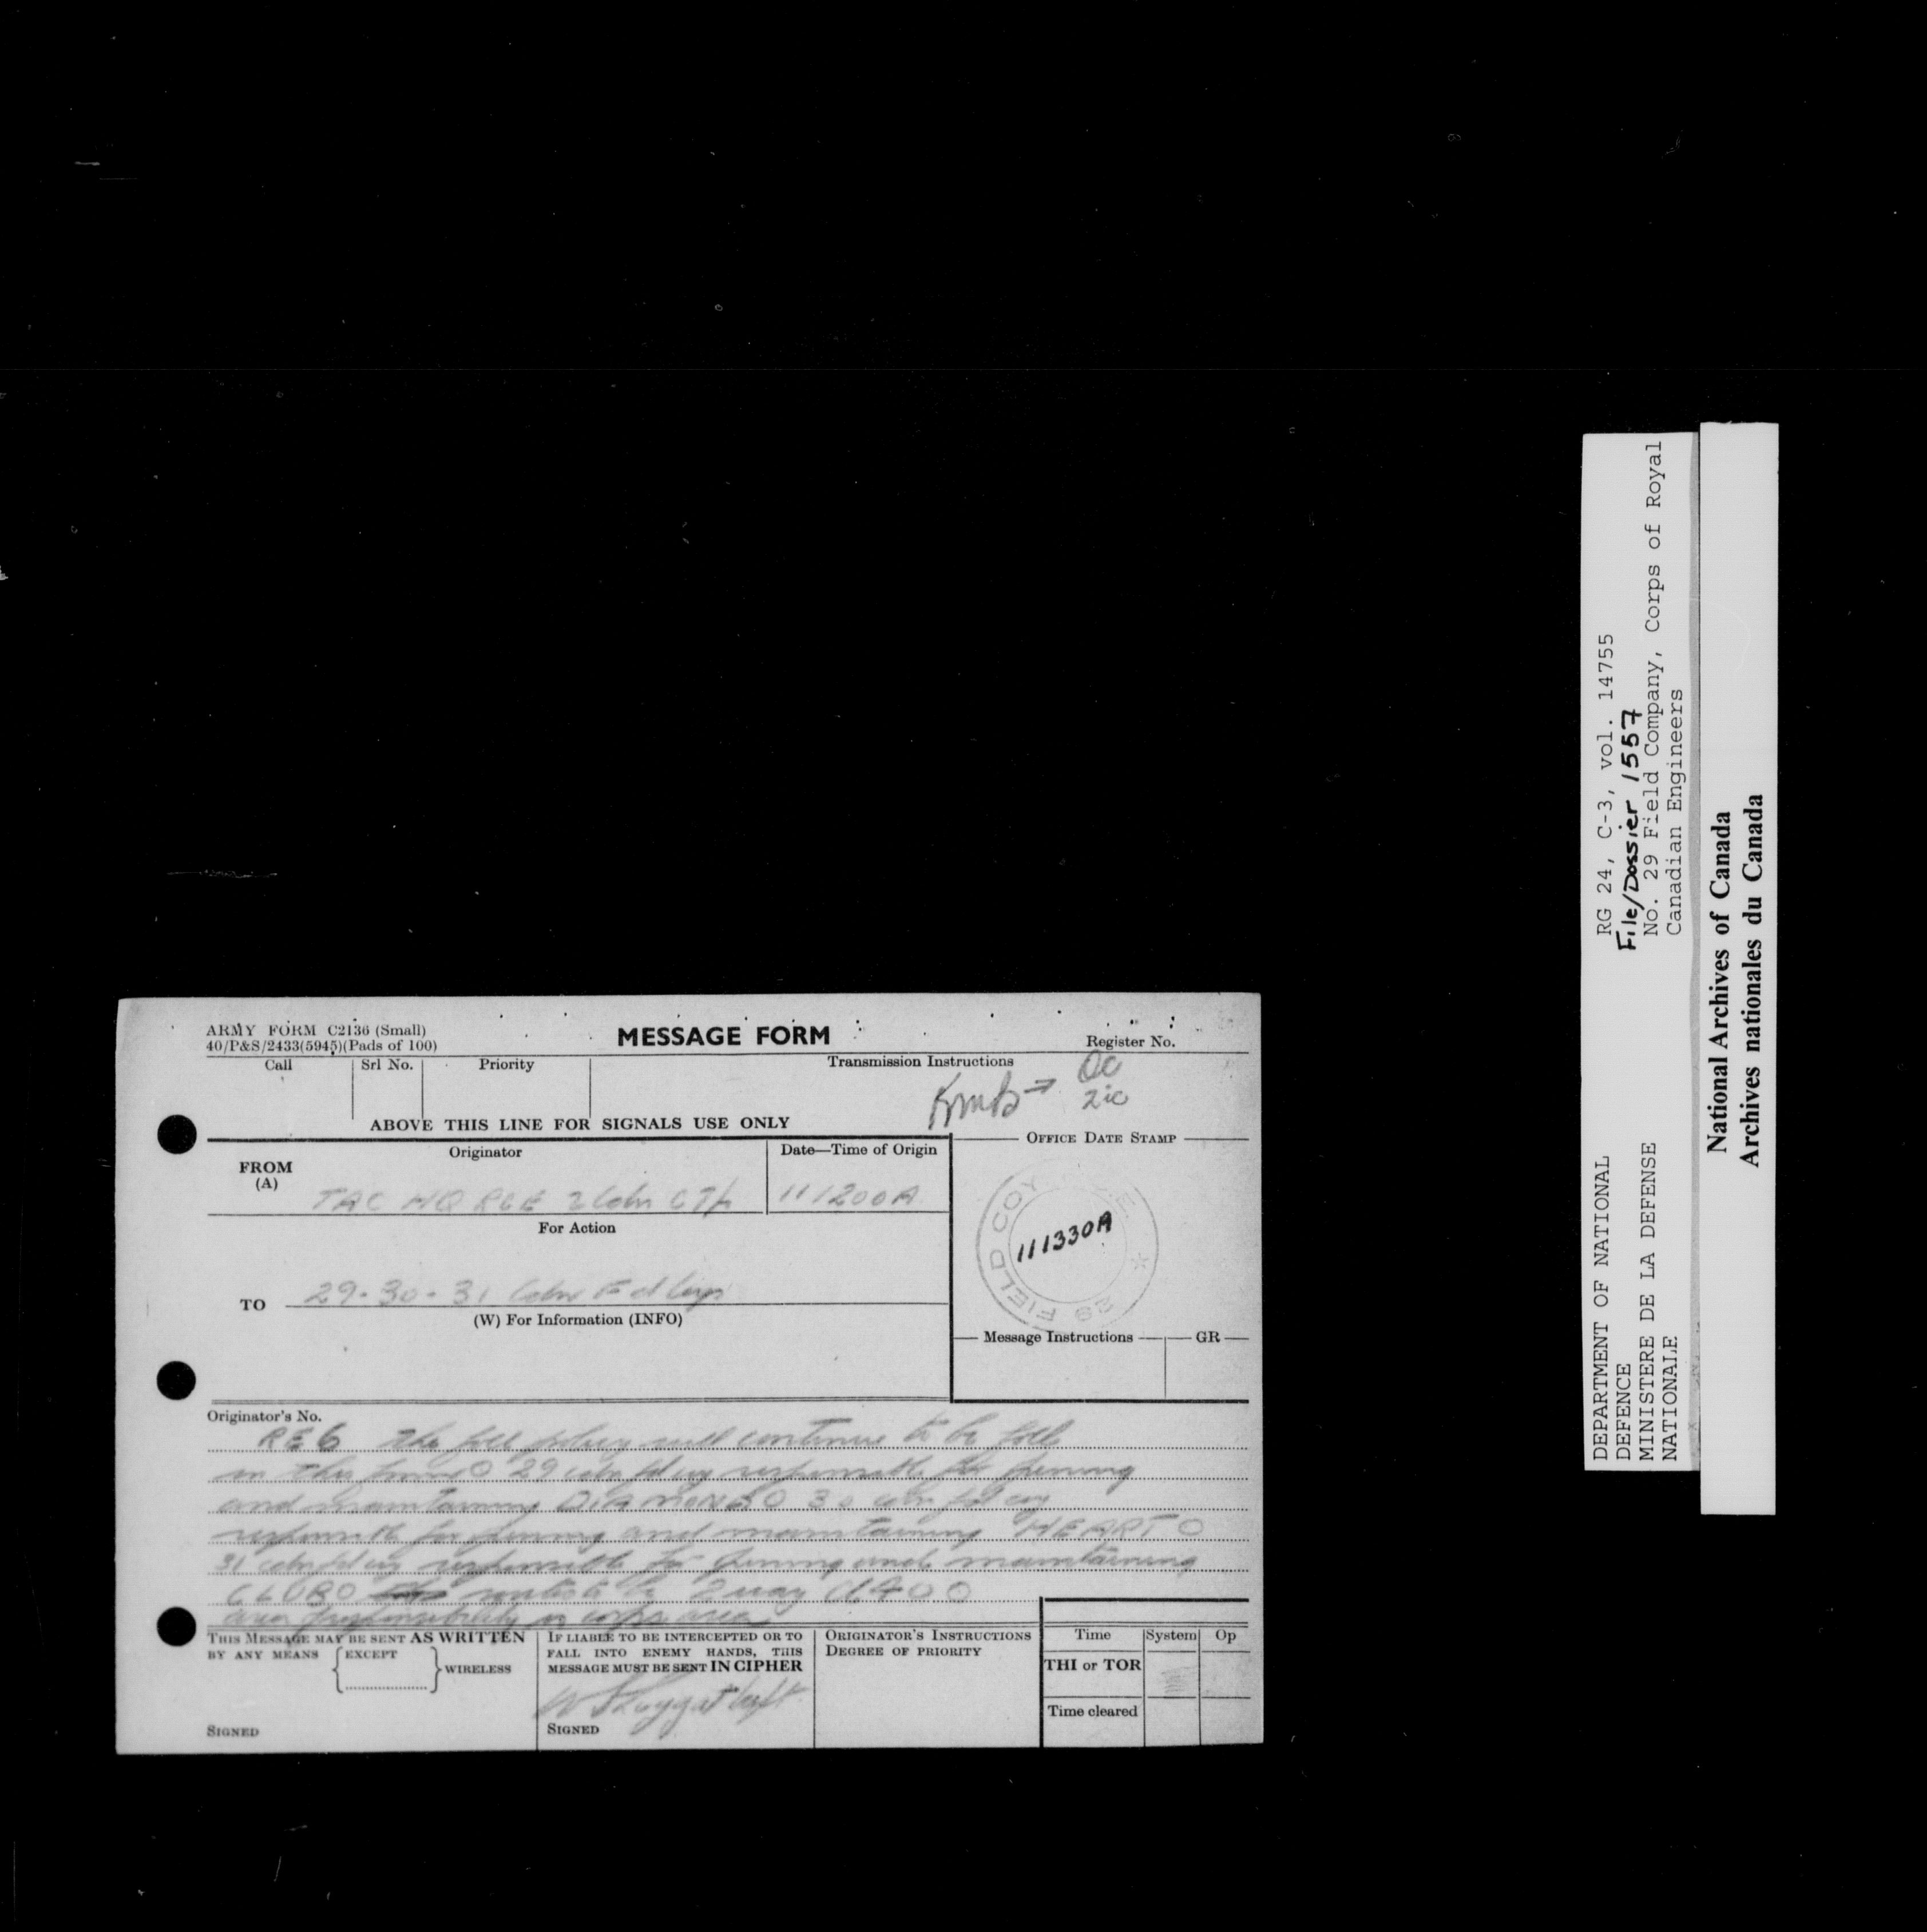 ARMY FORM C2136 (Small)
40/P&S/2433(5945)(Pads of 100)
MESSAGE FORM
Register No.
Call
Srl No.
Priority
Transmission Instructions
OC
2ic
ABOVE THIS LINE FOR SIGNALS USE ONLY
OFFICE DATE STAMP
Originator
Date—Time of Origin
FROM
(A)
TAC HQ RCE 2 Cdn
111200A
29 FIELD COY
111330A
For Action
TO
29-30-31 Cdn Fd Coys
(W) For Information (INFO)
Message Instructions
GR
Originator's No.
RE6 the foll policy will continue to be foll
in this 29 cdn fd coy responsible for
and maintaining DIAMOND O 30 cdn fd coy
responsible for and maintaining HEART O
31 cdn fd coy responsible for and maintaining
CLUB O to be 2 way cl 40 O
area responsibility is corps area
THIS MESSAGE MAY BE SENT AS WRITTEN
BY ANY MEANS EXCEPT WIRELESS
SIGNED
IF LIABLE TO BE INTERCEPTED OR TO
FALL INTO ENEMY HANDS, THIS
MESSAGE MUST BE SENT IN CIPHER
SIGNED
ORIGINATOR'S INSTRUCTIONS
DEGREE OF PRIORITY
Time
System
Op
THI or TOR
Time cleared
DEPARTMENT OF NATIONAL
DEFENCE
MINISTERE DE LA DEFENSE
NATIONALE
RG 24, C-3, vol. 14755
File/Dossier 1557
No. 29 Field Company, Corps of Royal
Canadian Engineers
National Archives of Canada
Archives nationales du Canada